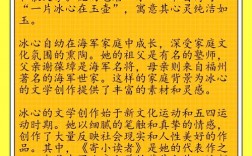 “一片冰心在玉壶”，寓意其心灵纯洁如
玉。
冰心自幼在海军家庭中成长，深受家庭文
化氛围的熏陶。她的祖父是有名的塾师，
父亲谢葆璋是海军名将，母亲则来自福州
著名的海军世家。这样的家庭背景为冰心
的文学创作提供了丰富的素材和灵感。
冰心的文学创作始于新文化运动和五四运
动时期。她以细腻的笔触和真挚的情感，
创作了大量反映社会现实和人性美好的作
品。其中，《寄小读者》是她的代表作之